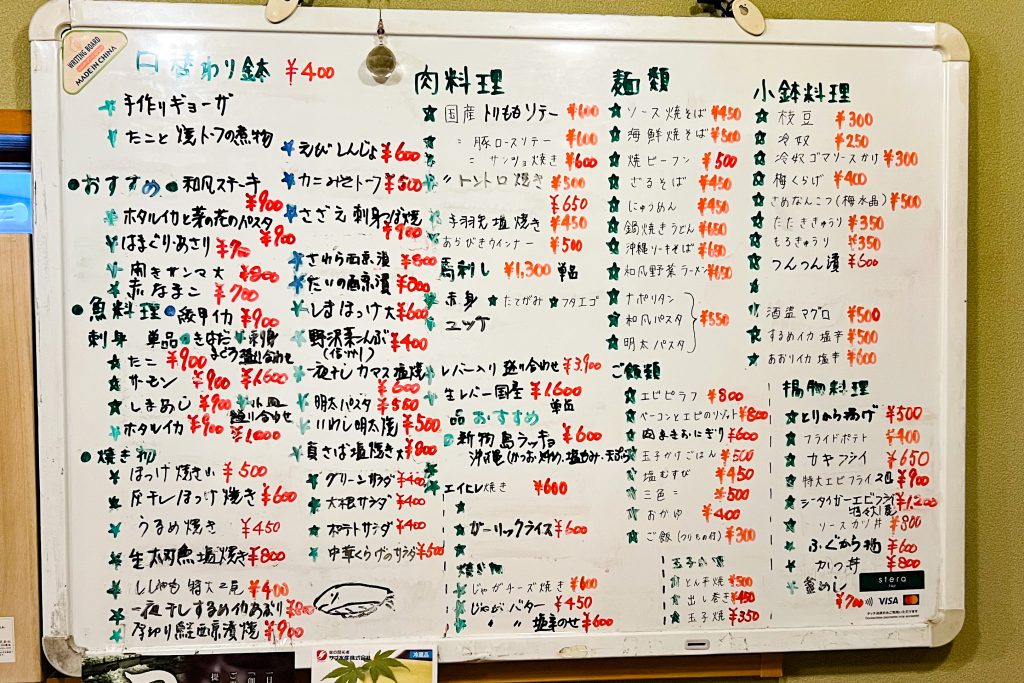 WRITING BOARD
MADE IN CHINA
日替わり鉢 ¥400
手作りギョーザ
たこと焼トーフの煮物
おすすめ 和風ステーキ ¥900
ホタルイカと菜の花のパスタ ¥900
はまぐりあさり ¥700
開きサンマ大 ¥800
赤なまこ ¥700
魚料理 紋甲イカ ¥900
刺身 単品 きはだまぐろ 刺身盛り合わせ ¥1,600
たこ ¥900
サーモン ¥900
しまあじ ¥900
小皿盛り合わせ ¥1,000
ホタルイカ ¥900
焼き物
ほっけ焼き小 ¥500
灰干しほっけ焼き ¥600
うるめ焼き ¥450
生太刀魚塩焼き ¥800
ししゃも特大2尾 ¥400
一夜干しするめイカあぶり ¥800
厚切り鮭西京漬焼 ¥900
えびしんじょ ¥600
カニみそトーフ ¥500
さざえ 刺身 つぼ焼 ¥900
さわら西京漬 ¥800
たいの西京漬 ¥800
しまほっけ大 ¥600
野沢菜こんぶ ¥400
一夜干しカマス塩焼 ¥600
明太パスタ ¥550
いわし明太焼 ¥500
真さば塩焼き大 ¥800
グリーンサラダ ¥400
大根サラダ ¥400
ポテトサラダ ¥400
中華くらげのサラダ ¥500
肉料理
国産トリももソテー ¥600
〃 豚ロースソテー ¥600
〃 サンショ焼き ¥600
〃 トントロ焼き ¥500
¥650
手羽先塩焼き ¥450
あらびきウインナー ¥500
馬刺し ¥1,300 単品
赤身 たてがみ フタエゴ
ユッケ
レバー入り盛り合わせ ¥3,900
生レバー国産 ¥1,600 単品
品おすすめ
新物島ラッキョ ¥600
沖縄(かつお炒め、塩もみ、天ぷら)
エイヒレ焼き ¥600
ガーリックライス ¥600
焼き物
じゃがチーズ焼き ¥600
じゃがバター ¥450
〃 〃 塩辛のせ ¥600
麺類
ソース焼そば ¥450
海鮮焼そば ¥500
焼ビーフン ¥500
ざるそば ¥450
にゅうめん ¥450
鍋焼きうどん ¥650
沖縄ソーキそば ¥650
和風野菜ラーメン ¥650
ナポリタン
和風パスタ ¥550
明太パスタ
ご飯類
エビピラフ ¥800
ベーコンとエビのリゾット ¥800
肉まきおにぎり ¥600
玉子かけごはん ¥500
塩むすび ¥450
三色〃 ¥500
おかゆ ¥400
ご飯(つけもの付) ¥300
とん平焼 ¥500
出し巻き ¥450
玉子焼 ¥350
小鉢料理
枝豆 ¥300
冷奴 ¥250
冷奴ゴマソースかけ ¥300
梅くらげ ¥400
さめなんこつ(梅水晶) ¥500
たたききゅうり ¥350
もろきゅうり ¥350
つんつん漬 ¥600
酒盗マグロ ¥500
するめイカ塩辛 ¥500
あおりイカ塩辛 ¥600
揚物料理
とりから揚げ ¥500
フライドポテト ¥400
カキフライ ¥650
特大エビフライ2L ¥900
シータイガーエビフライ ¥1,200
ソースカツ丼 ¥800
ふぐから揚 ¥600
かつ丼 ¥800
釜めし ¥700
stera
VISA
冷蔵品